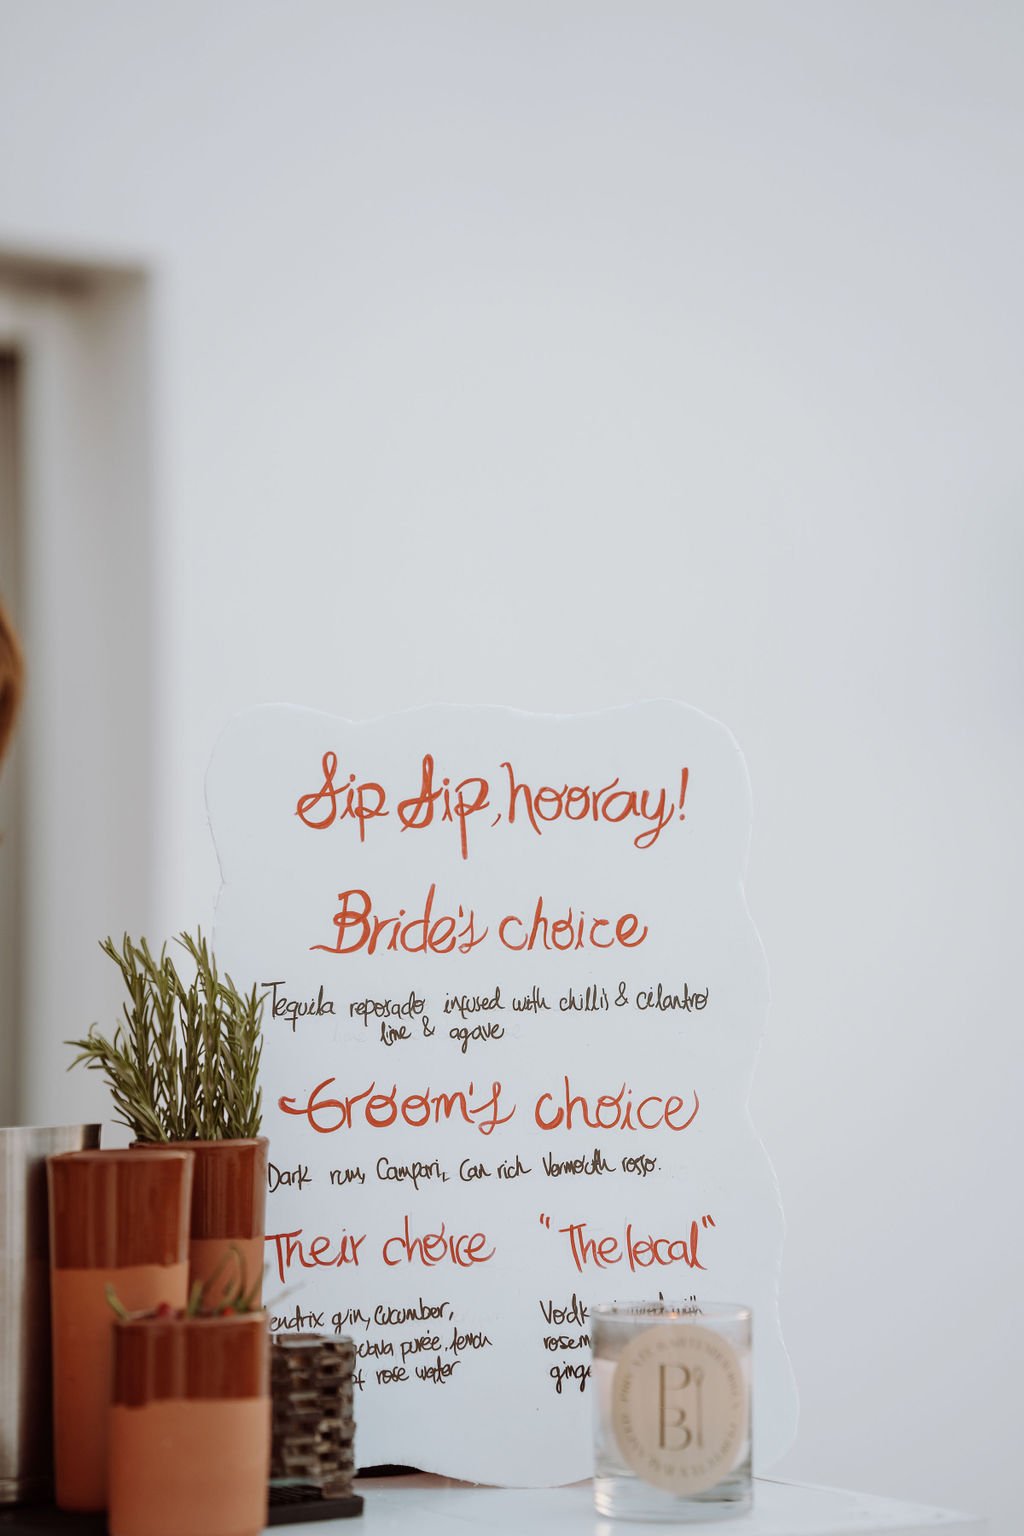 Sip Sip, hooray!
Bride's choice
Tequila reposado infused with chilli's & cilantro
lime & agave
Groom's choice
Dark rum, Campari, Can rich Vermouth rosso.
Their choice
endrix gin, Cucumber,
purée, lemon
rose water
"The local"
Vodk with
rosem
ginge
PiBi